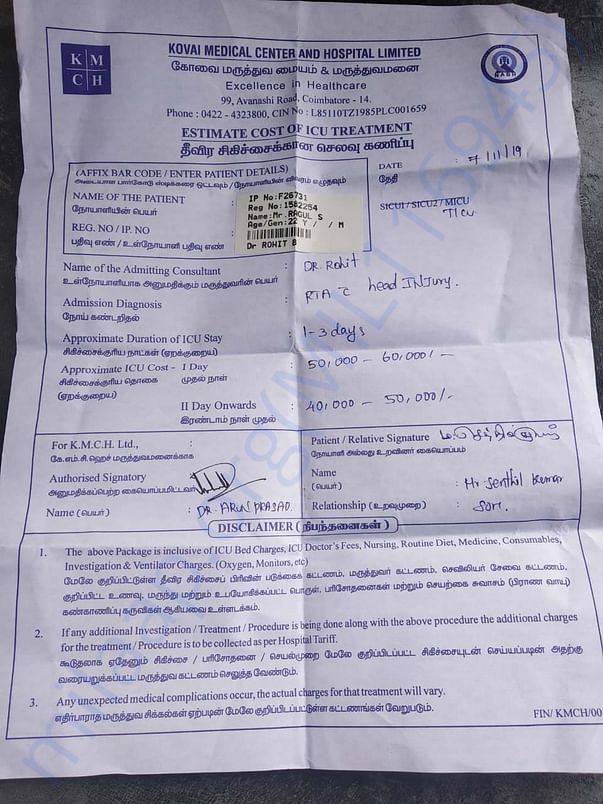 K M
C H
KOVAI MEDICAL CENTER AND HOSPITAL LIMITED
கோவை மருத்துவ மையம் & மருத்துவமனை
Excellence in Healthcare
99, Avanashi Road, Coimbatore - 14.
Phone : 0422 - 4323800, CIN No : L85110TZ1985PLC001659
NABH
ESTIMATE COST OF ICU TREATMENT
தீவிர சிகிச்சைக்கான செலவு கணிப்பு
(AFFIX BAR CODE / ENTER PATIENT DETAILS)
அடையாள பார்கோடு ஸ்டிக்கரை ஒட்டவும் / நோயாளியின் விவரம் எழுதவும்
NAME OF THE PATIENT :
நோயாளியின் பெயர்
REG. NO / IP. NO :
பதிவு எண் / உள்நோயாளி பதிவு எண்
IP No:F26731
Reg No:1582254
Name:Mr.RAGUL S
Age/Gen:22 Y / / M
Dr ROHIT B
DATE : 7/11/19
தேதி
SICU1 / SICU2 / MICU :
TICU
Name of the Admitting Consultant : DR. Rohit
உள்நோயாளியாக அனுமதிக்கும் மருத்துவரின் பெயர்
Admission Diagnosis : RTA c̄ head INJury.
நோய் கண்டறிதல்
Approximate Duration of ICU Stay : 1-3 days
சிகிச்சைக்குரிய நாட்கள் (ஏறக்குறைய)
Approximate ICU Cost - I Day : 50,000 - 60,000/-
சிகிச்சைக்குரிய தொகை முதல் நாள்
(ஏறக்குறைய)
II Day Onwards : 40,000 - 50,000/-
இரண்டாம் நாள் முதல்
For K.M.C.H. Ltd., :
கே.எம்.சி.ஹெச் மருத்துவமனைக்காக
Authorised Signatory
அனுமதிக்கப்பெற்ற கையொப்பமிட்டவர்
Name (பெயர்) : DR. ARUN PRASAD.
Patient / Relative Signature
நோயாளி அல்லது உறவினர் கையொப்பம்
Name : Mr Senthil Kumar
(பெயர்)
Relationship (உறவுமுறை) : Son.
DISCLAIMER (நிபந்தனைகள்)
1. The above Package is inclusive of ICU Bed Charges, ICU Doctor's Fees, Nursing, Routine Diet, Medicine, Consumables,
Investigation & Ventilator Charges. (Oxygen, Monitors, etc)
மேலே குறிப்பிட்டுள்ள தீவிர சிகிச்சைப் பிரிவின் படுக்கைக் கட்டணம், மருத்துவர் கட்டணம், செவிலியர் சேவை கட்டணம்,
குறிப்பிட்ட உணவு, மருந்து மற்றும் உபயோகிக்கப்பட்ட பொருள், பரிசோதனைகள் மற்றும் செயற்கை சுவாசம் (பிராண வாயு)
கண்காணிப்பு கருவிகள் ஆகியவை உள்ளடக்கம்.
2. If any additional Investigation / Treatment / Procedure is being done along with the above procedure the additional charges
for the treatment / Procedure is to be collected as per Hospital Tariff.
கூடுதலாக ஏதேனும் சிகிச்சை / பரிசோதனை / செயல்முறை மேலே குறிப்பிடப்பட்ட சிகிச்சையுடன் செய்யப்படின் அதற்கு
வரையறுக்கப்பட்ட மருத்துவ கட்டணம் செலுத்த வேண்டும்.
3. Any unexpected medical complications occur, the actual charges for that treatment will vary.
எதிர்பாராத மருத்துவ சிக்கல்கள் ஏற்படின் மேலே குறிப்பிடப்பட்டுள்ள கட்டணங்கள் வேறுபடும்.
FIN/ KMCH/00